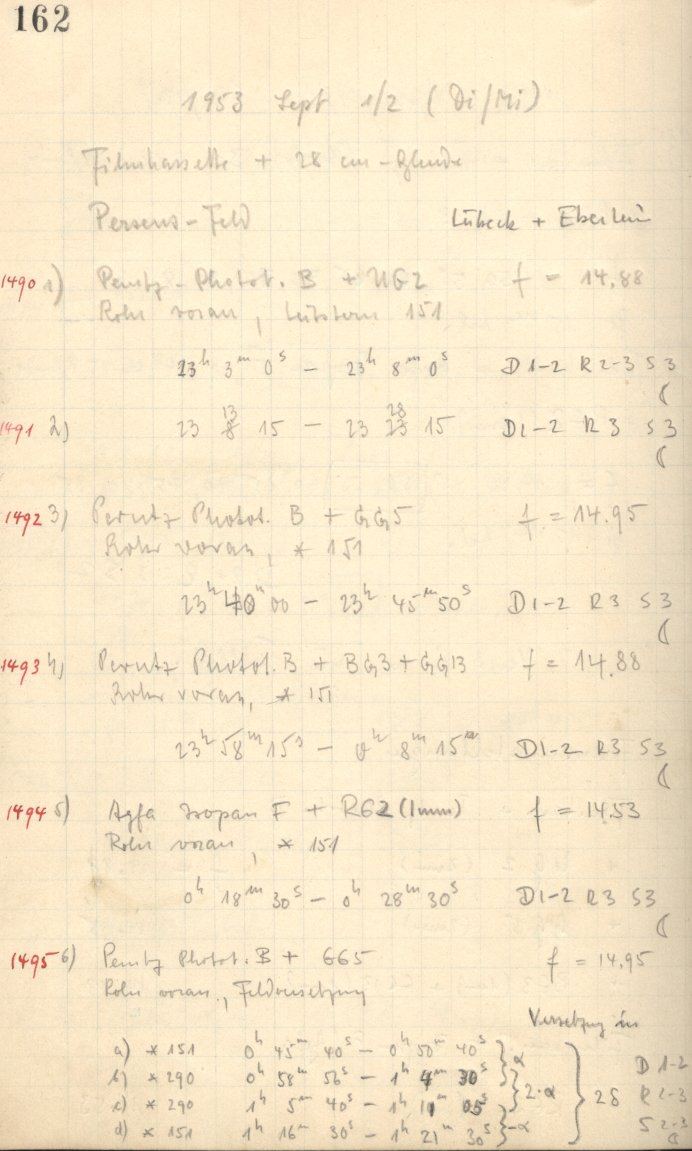 162
1953 Sept 1/2 (Di/Mi)
Filmkassette + 28 cm-Blende
Perseus-Feld Lübeck + Eberlein
1490 1) Perutz-Photot. B + UG2 f = 14.88
Rohr voran, Leitstern 151
23h 3m 0s – 23h 8m 0s D1-2 R2-3 S3
(
1491 2) 23 8 13 15 – 23 23 28 15 D1-2 R3 S3
(
1492 3) Perutz Photot. B + GG5 f = 14.95
Rohr voran, * 151
23h 40m 00 – 23h 45m 50s D1-2 R3 S3
(
1493 4) Perutz Photot. B + BG3 + GG13 f = 14.88
Rohr voran, * 151
23h 58m 15s – 0h 8m 15m D1-2 R3 S3
(
1494 5) Agfa Isopan F + RG2 (1mm) f = 14.53
Rohr voran, * 151
0h 18m 30s – 0h 28m 30s D1-2 R3 S3
(
1495 6) Perutz Photot. B + GG5 f = 14.95
Rohr voran., Feldversetzung
Versetzung in
a) * 151 0h 45m 40s – 0h 50m 40s } α
b) * 290 0h 58m 56s – 1h 4m 30s } 2·α } 2δ D1-2
c) * 290 1h 5m 40s – 1h 11m 05s R2-3
d) * 151 1h 16m 30s – 1h 21m 30s } -α S2-3
(